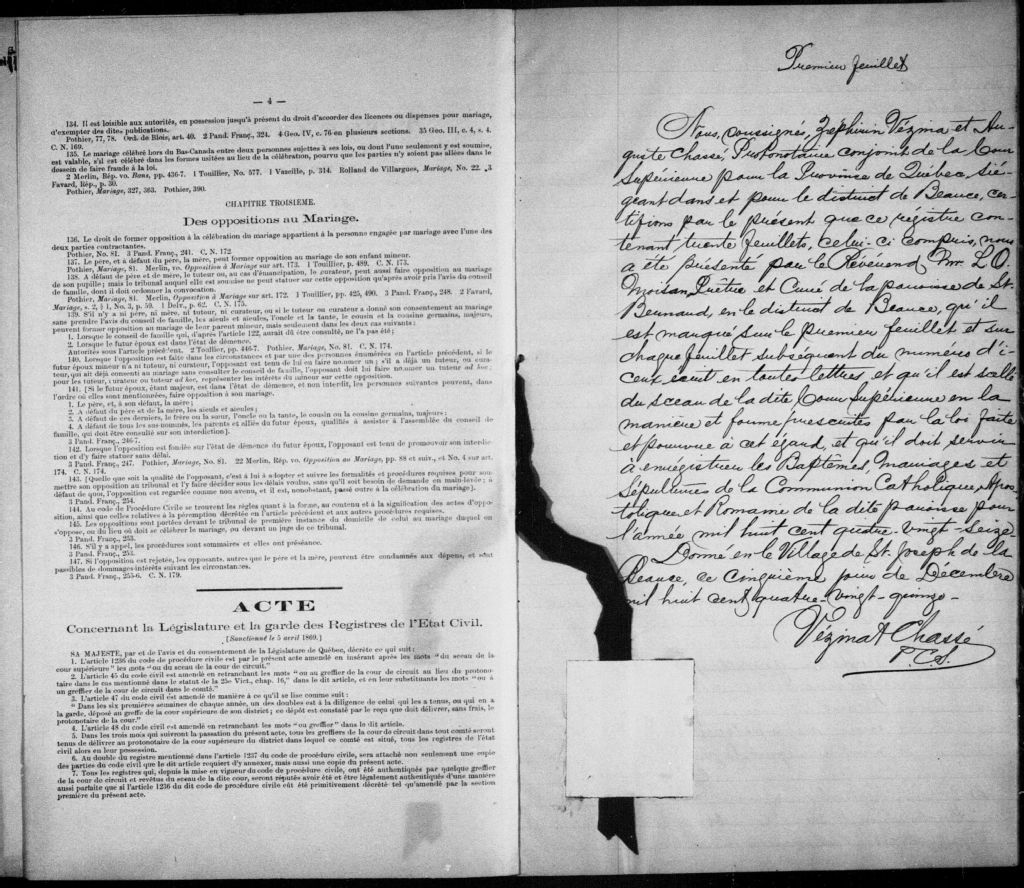 — 4 —
134. Il est loisible aux autorités, en possession jusqu'à présent du droit d'accorder des licences ou dispenses pour mariage,
d'exempter des dites publications.
Pothier, 77, 78. Ord. de Blois, art. 40. 2 Pand. Franç., 324. 4 Geo. IV, c. 76 en plusieurs sections. 35 Geo. III, c. 4, s. 4.
C. N. 169.
135. Le mariage célébré hors du Bas-Canada entre deux personnes sujettes à ses lois, ou dont l'une seulement y est soumise,
est valable, s'il est célébré dans les formes usitées au lieu de la célébration, pourvu que les parties n'y soient pas allées dans le
dessein de faire fraude à la loi.
2 Merlin, Rép. vo. Bans, pp. 436-7. 1 Touillier, No. 577. 1 Vazeille, p. 314. Rolland de Villargues, Mariage, No. 22. 3
Favard, Rép., p. 30.
Pothier, Mariage, 327, 363. Pothier, 390.
CHAPITRE TROISIEME.
Des oppositions au Mariage.
136. Le droit de former opposition à la célébration du mariage appartient à la personne engagée par mariage avec l'une des
deux parties contractantes.
Pothier, No. 81. 3 Pand. Franç., 241. C. N. 172
137. Le père, et à défaut du père, la mère, peut former opposition au mariage de son enfant mineur.
Pothier, Mariage, 81. Merlin, vo. Opposition à Mariage sur art. 173. 1 Touillier, p. 489. C. N. 173.
138. A défaut de père et de mère, le tuteur ou, au cas d'émancipation, le curateur, peut aussi faire opposition au mariage
de son pupille; mais le tribunal auquel elle est soumise ne peut statuer sur cette opposition qu'après avoir pris l'avis du conseil
de famille, dont il doit ordonner la convocation.
Pothier, Mariage, 81. Merlin, Opposition à Mariage sur art. 172. 1 Touillier, pp. 425, 490. 3 Pand. Franç., 248. 2 Favard,
Mariage, s. 2, § 1, No. 3, p. 59. 1 Delv., p. 62. C. N. 175.
139. S'il n'y a ni père, ni mère, ni tuteur, ni curateur, ou si le tuteur ou curateur a donné son consentement au mariage
sans prendre l'avis du conseil de famille, les aieuls et aieules, l'oncle et la tante, le cousin et la cousine germains, majeurs,
peuvent former opposition au mariage de leur parent mineur, mais seulement dans les deux cas suivants:
1. Lorsque le conseil de famille qui, d'après l'article 122, aurait dû être consulté, ne l'a pas été;
2. Lorsque le futur époux est dans l'état de démence.
Autorités sous l'article précédent. 2 Touillier, pp. 446-7. Pothier, Mariage, No. 81. C. N. 174.
140. Lorsque l'opposition est faite dans les circonstances et par une des personnes énumérées en l'article précédent, si le
futur époux mineur n'a ni tuteur, ni curateur, l'opposant est tenu de lui en faire nommer un; s'il a déjà un tuteur, ou cura-
teur, qui ait déjà consenti au mariage sans consulter le conseil de famille, l'opposant doit lui faire nommer un tuteur ad hoc;
pour les tuteur, curateur ou tuteur ad hoc, représenter les intérêts du mineur sur cette opposition.
141. [Si le futur époux, étant majeur, est dans l'état de démence, et non interdit, les personnes suivantes peuvent, dans
l'ordre où elles sont mentionnées, faire opposition à son mariage.
1. Le père, et, à son défaut, la mère;
2. A défaut du père et de la mère, les aieuls et aieules;
3. A défaut de ces derniers, le frère ou la sœur, l'oncle ou la tante, le cousin ou la cousine germains, majeurs;
4. A défaut de tous les sus-nommés, les parents et alliés du futur époux, qualifiés à assister à l'assemblée du conseil de
famille, qui doit être consulté sur son interdiction]
3 Pand. Franç., 246-7.
142. Lorsque l'opposition est fondée sur l'état de démence du futur époux, l'opposant est tenu de promouvoir son interdic-
tion et d'y faire statuer sans délai.
3 Pand. Franç., 247. Pothier, Mariage, No. 81. 22 Merlin, Rép. vo. Opposition au Mariage, pp. 88 et suiv., et No. 4 sur art.
174. C. N. 174.
143. [Quelle que soit la qualité de l'opposant, c'est à lui à adopter et suivre les formalités et procédures requises pour sou-
mettre son opposition au tribunal et l'y faire décider sous les délais voulus, sans qu'il soit besoin de demande en main-levée; à
défaut de quoi, l'opposition est regardée comme non avenu, et il est, nonobstant, passé outre à la célébration du mariage].
3 Pand. Franç., 254.
144. Au code de Procédure Civile se trouvent les règles quant à la forme, au contenu et à la signification des actes d'oppo-
sition, ainsi que celles relatives à la péremption décrétée en l'article précédent et aux autres procédures requises.
145. Les oppositions sont portées devant le tribunal de première instance du domicile de celui au mariage duquel on
s'oppose, ou du lieu où doit se célébrer le mariage, ou devant un juge de ce tribunal.
3 Pand. Franç., 253.
146. S'il y a appel, les procédures sont sommaires et elles ont préséance.
3 Pand. Franç., 253.
147. Si l'opposition est rejetée, les opposants, autres que le père et la mère, peuvent être condamnés aux dépens, et sont
passibles de dommages-intérêts suivant les circonstances.
3 Pand. Franç., 255-6. C. N. 179.
ACTE
Concernant la Législature et la garde des Registres de l'Etat Civil.
[Sanctionné le 5 avril 1869.]
SA MAJESTE, par et de l'avis et du consentement de la Législature de Québec, décrète ce qui suit:
1. L'article 1236 du code de procédure civile est par le présent acte amendé en insérant après les mots "du sceau de la
cour supérieure" les mots "ou du sceau de la cour de circuit."
2. L'article 45 du code civil est amendé en retranchant les mots "ou au greffier de la cour de circuit au lieu du protono-
taire dans le cas mentionné dans le statut de la 25e Vict., chap. 16," dans le dit article, et en leur substituant les mots "ou à
un greffier de la cour de circuit dans le comté."
3. L'article 47 du code civil est amendé de manière à ce qu'il se lise comme suit:
"Dans les six premières semaines de chaque année, un des doubles est à la diligence de celui qui les a tenus, ou qui en a
la garde, déposé au greffe de la cour supérieure de son district; ce dépôt est constaté par le reçu que doit délivrer, sans frais, le
protonotaire de la cour."
4. L'article 48 du code civil est amendé en retranchant les mots "ou greffier" dans le dit article.
5. Dans les trois mois qui suivront la passation du présent acte, tous les greffiers de la cour de circuit dans tout comté seront
tenus de délivrer au protonotaire de la cour supérieure du district dans lequel ce comté est situé, tous les registres de l'état
civil alors en leur possession.
6. Au double du registre mentionné dans l'article 1237 du code de procédure civile, sera attaché non seulement une copie
des parties du code civil que le dit article requiert d'y annexer, mais aussi une copie du présent acte.
7. Tous les registres qui, depuis la mise en vigueur du code de procédure civile, ont été authentiqués par quelque greffier
de la cour de circuit et revêtus du sceau de la dite cour, seront réputés avoir été et être légalement authentiqués d'une manière
aussi parfaite que si l'article 1236 du dit code de procédure civile eût été primitivement décrété tel qu'amendé par la section
première du présent acte.
Premier feuillet
Nous, soussignés, Zéphirin Vézina et Au-
guste Chassé, Protonotaire conjoint de la Cour
Supérieure pour la Province de Québec, sié-
geant dans et pour le district de Beauce, cer-
tifions par le présent que ce régistre con-
tenant trente feuillets, celui-ci compris, nous
a été présenté par le Révérend Mr. L. O.
Moisan, Prêtre et Curé de la paroisse de St.
Bernard, en le district de Beauce, qu'il
est marqué sur le premier feuillet et sur
chaque feuillet subséquent du numéros d'i-
ceux écrit en toutes lettres, et qu'il est scellé
du sceau de la dite Cour Supérieure en la
manière et forme prescrites par la loi faite
et pourvue à cet égard, et qu'il doit servir
à enrégistrer les Baptêmes, Mariages et
Sépultures de la Communion Catholique, Apos-
tolique et Romaine de la dite paroisse pour
l'année mil huit cent quatre-vingt-seize
Donné en le Village de St. Joseph de la
Beauce, ce cinquième jour de Décembre
mil huit cent quatre-vingt-quinze-
Vézina & Chassé
P.C.S.